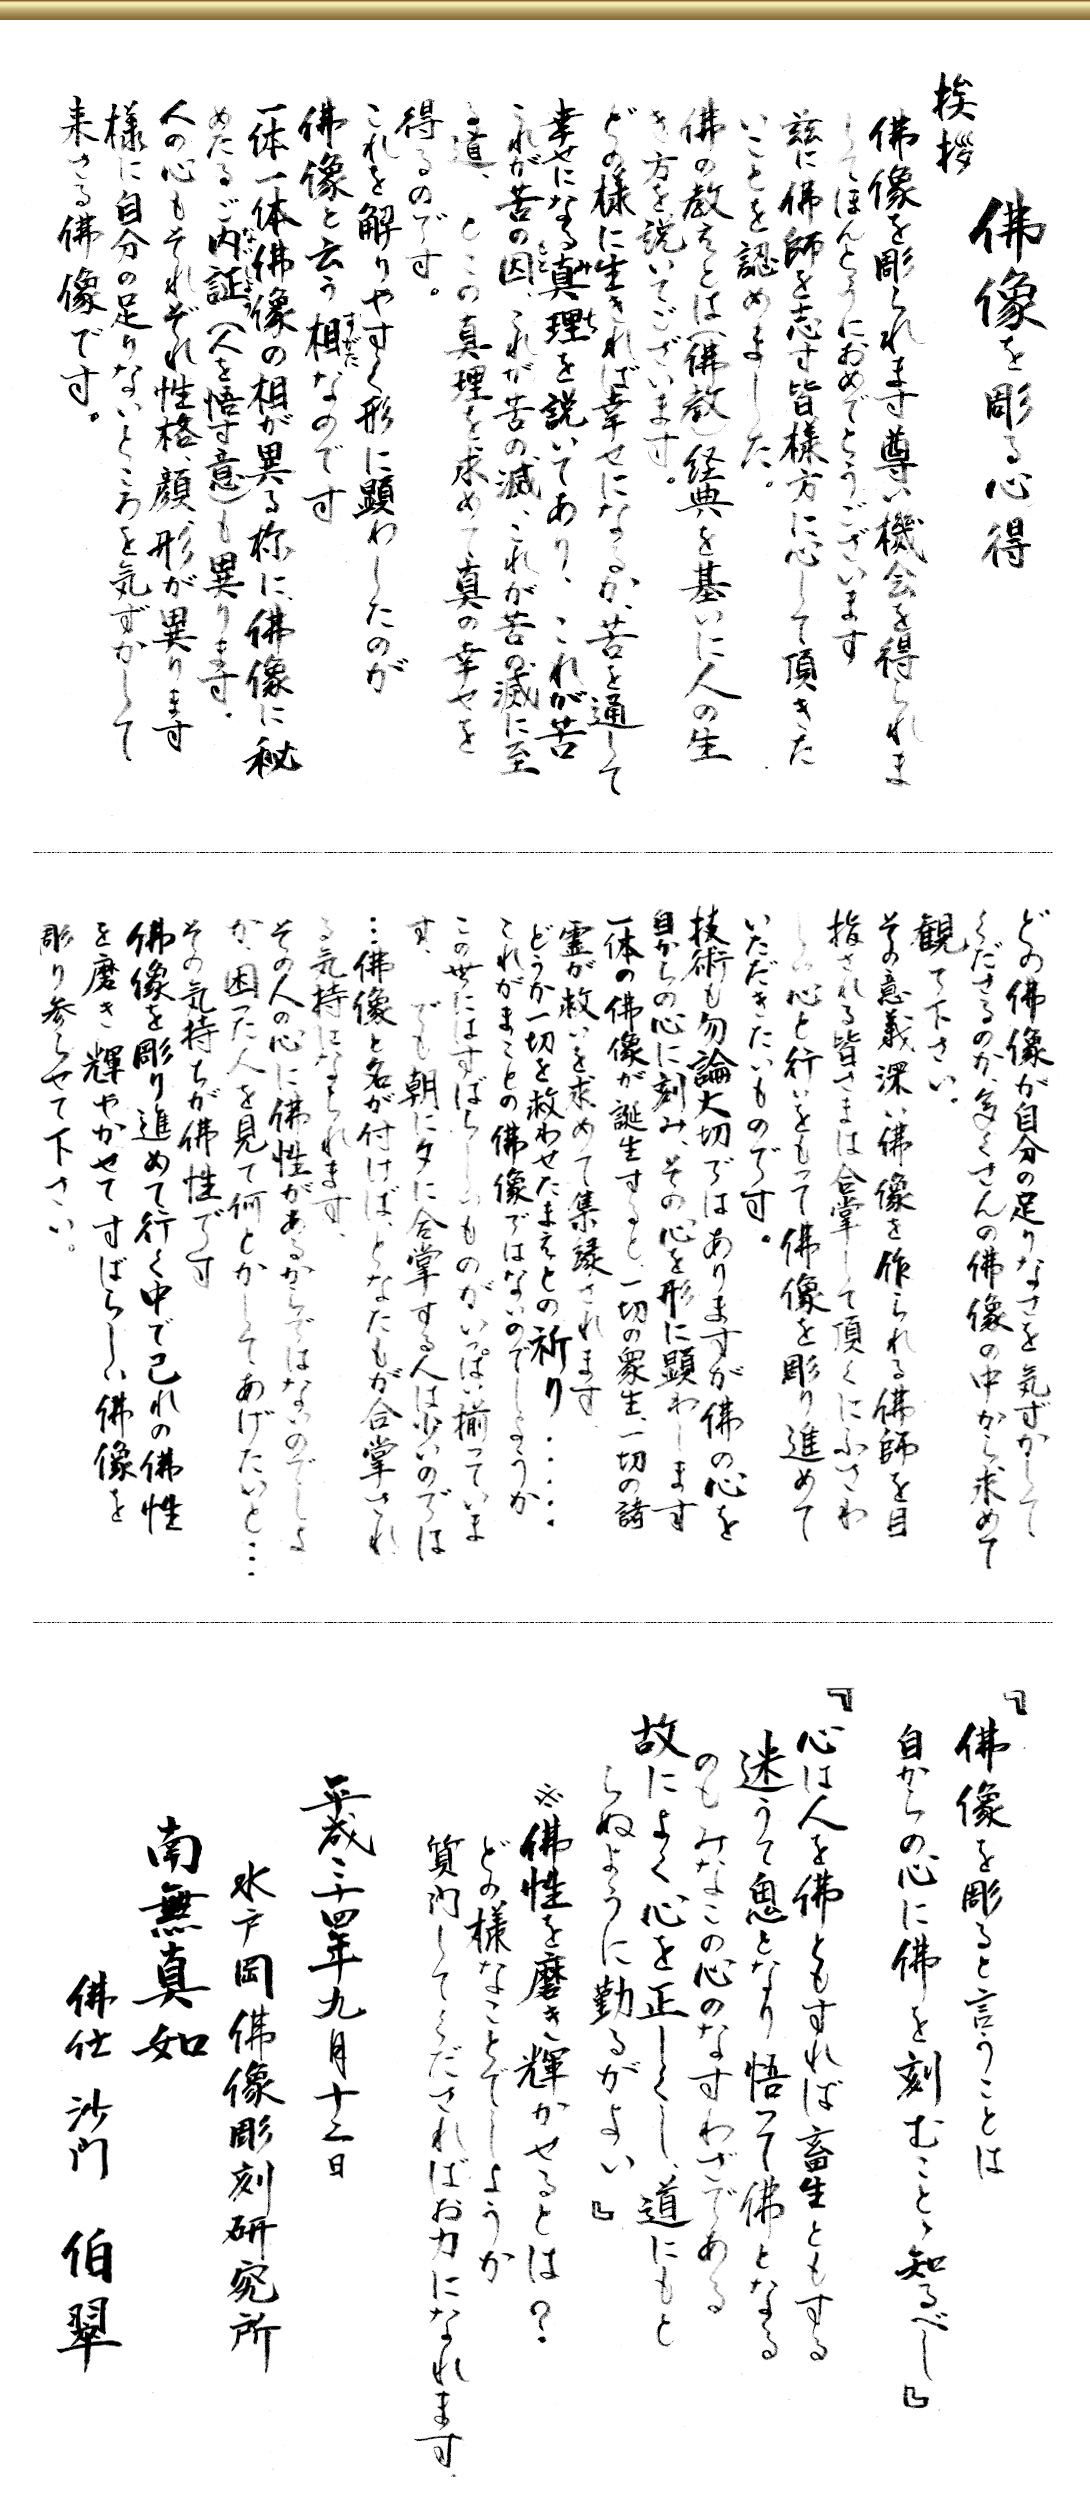 佛像を彫る心得
挨拶
佛像を彫られます尊い機会を得られま
してほんとうにおめでとうございます
茲に佛師を志す皆様方に心して頂きた
いことを認めました。
佛の教えとは(佛教)経典を基いに人の生
き方を説いてございます。
どの様に生きれば幸せになるか、苦を通して
幸せになる真理を説いてあり、これが苦
これが苦の因、これが苦の滅、これが苦の滅に至
る道、とこの真理を求めて真の幸せを
得るのです。
これを解りやすく形に顕わしたのが
佛像と云う相なのです
一体一体佛像の相が異る様に、佛像に秘
めたるご内証(人を悟す意)も異ります。
人の心もそれぞれ性格、顔、形が異ります
様に自分の足りないところを気ずかして
来さる佛像です。
どの佛像が自分の足りなさを気ずかして
くださるのか、多くさんの佛像の中から求めて
観て下さい。
その意義深い佛像を作られる佛師を目
指される皆さまは合掌して頂くにふさわ
しい心と行いをもって佛像を彫り進めて
いただきたいものです。
技術も勿論大切ではありますが佛の心を
自からの心に刻み、その心を形に顕わします
一体の佛像が誕生すると、一切の衆生、一切の諸
霊が救いを求めて集録されます
どうか一切を救わせたまえとの祈り・・・・・
これがまことの佛像ではないのでしょうか
この世にはすばらしいものがいっぱい揃っていま
す、でも朝に夕に合掌する人は少いのでは
…佛像と名が付けば、どなたもが合掌され
る気持になられます、
その人の心に佛性があるからではないのでしょ
か、困った人を見て何とかしてあげたいと…
その気持ちが佛性です
佛像を彫り進めて行く中で己れの佛性
を磨き輝やかせてすばらしい佛像を
彫り参らせて下さい。
『佛像を彫ると言うことは
自からの心に佛を刻むことゝ知るべし』
『心は人を佛ともすれば畜生ともする
迷うて鬼となり悟って佛となる
のもみなこの心のなすわざである
故によく心を正しくし、道にもと
らぬように勤るがよい』
※佛性を磨き輝かせるとは?
どの様なことでしょうか
質問してくだされればお力になれます。
平成二十四年九月十二日
水戸岡佛像彫刻研究所
南無真如
佛仕 沙門 伯翠